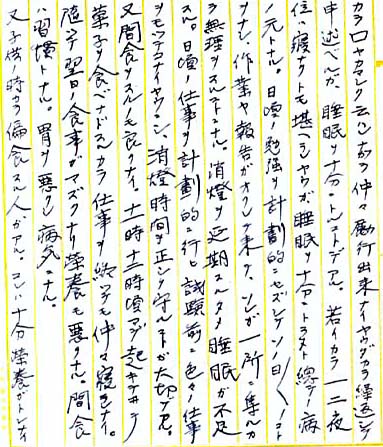 カラロヤカマシク云ッテモ仲々励行出来ナイヤウダカラ繰返シテ
申述ベルガ、睡眠ヲ十分トルコトデアル。若イカラ一二夜
位ハ寝ナクトモ堪ヘラレヤウガ、睡眠ヲ十分トラヌト総テノ病
ノ元トナル。日頃ノ勉強ヲ計劃的ニセズシテソノ日ノコト
ヲナシ、作業ヤ報告ガオクレテ来テ、ソレガ一所ニ集ルカ
ラ無理ヲスル事ニナル。消燈ヲ延期スルタメ睡眠ガ不足
スル。日頃ノ仕事ヲ計劃的ニ行ヒ試験前ニ色々ノ仕事
ヲモッテコナイヤウニシ、消燈時間ヲ正シク守ル事ガ大切デアル。
又間食ヲスルノモ良クナイ。十一時十二時頃マデ起キテヰテ
菓子ヲ食ベナドスルカラ仕事ヲ終ッテモ仲々寝ラレナイ。
随テ翌日ノ食事ガマズクナリ栄養モ悪クナル。間食
ハ習慣トナル。胃ヲ悪クシ病気ニナル。
又子供ノ時カラ偏食スル人ガアル。コレハ十分栄養ガトレナイ